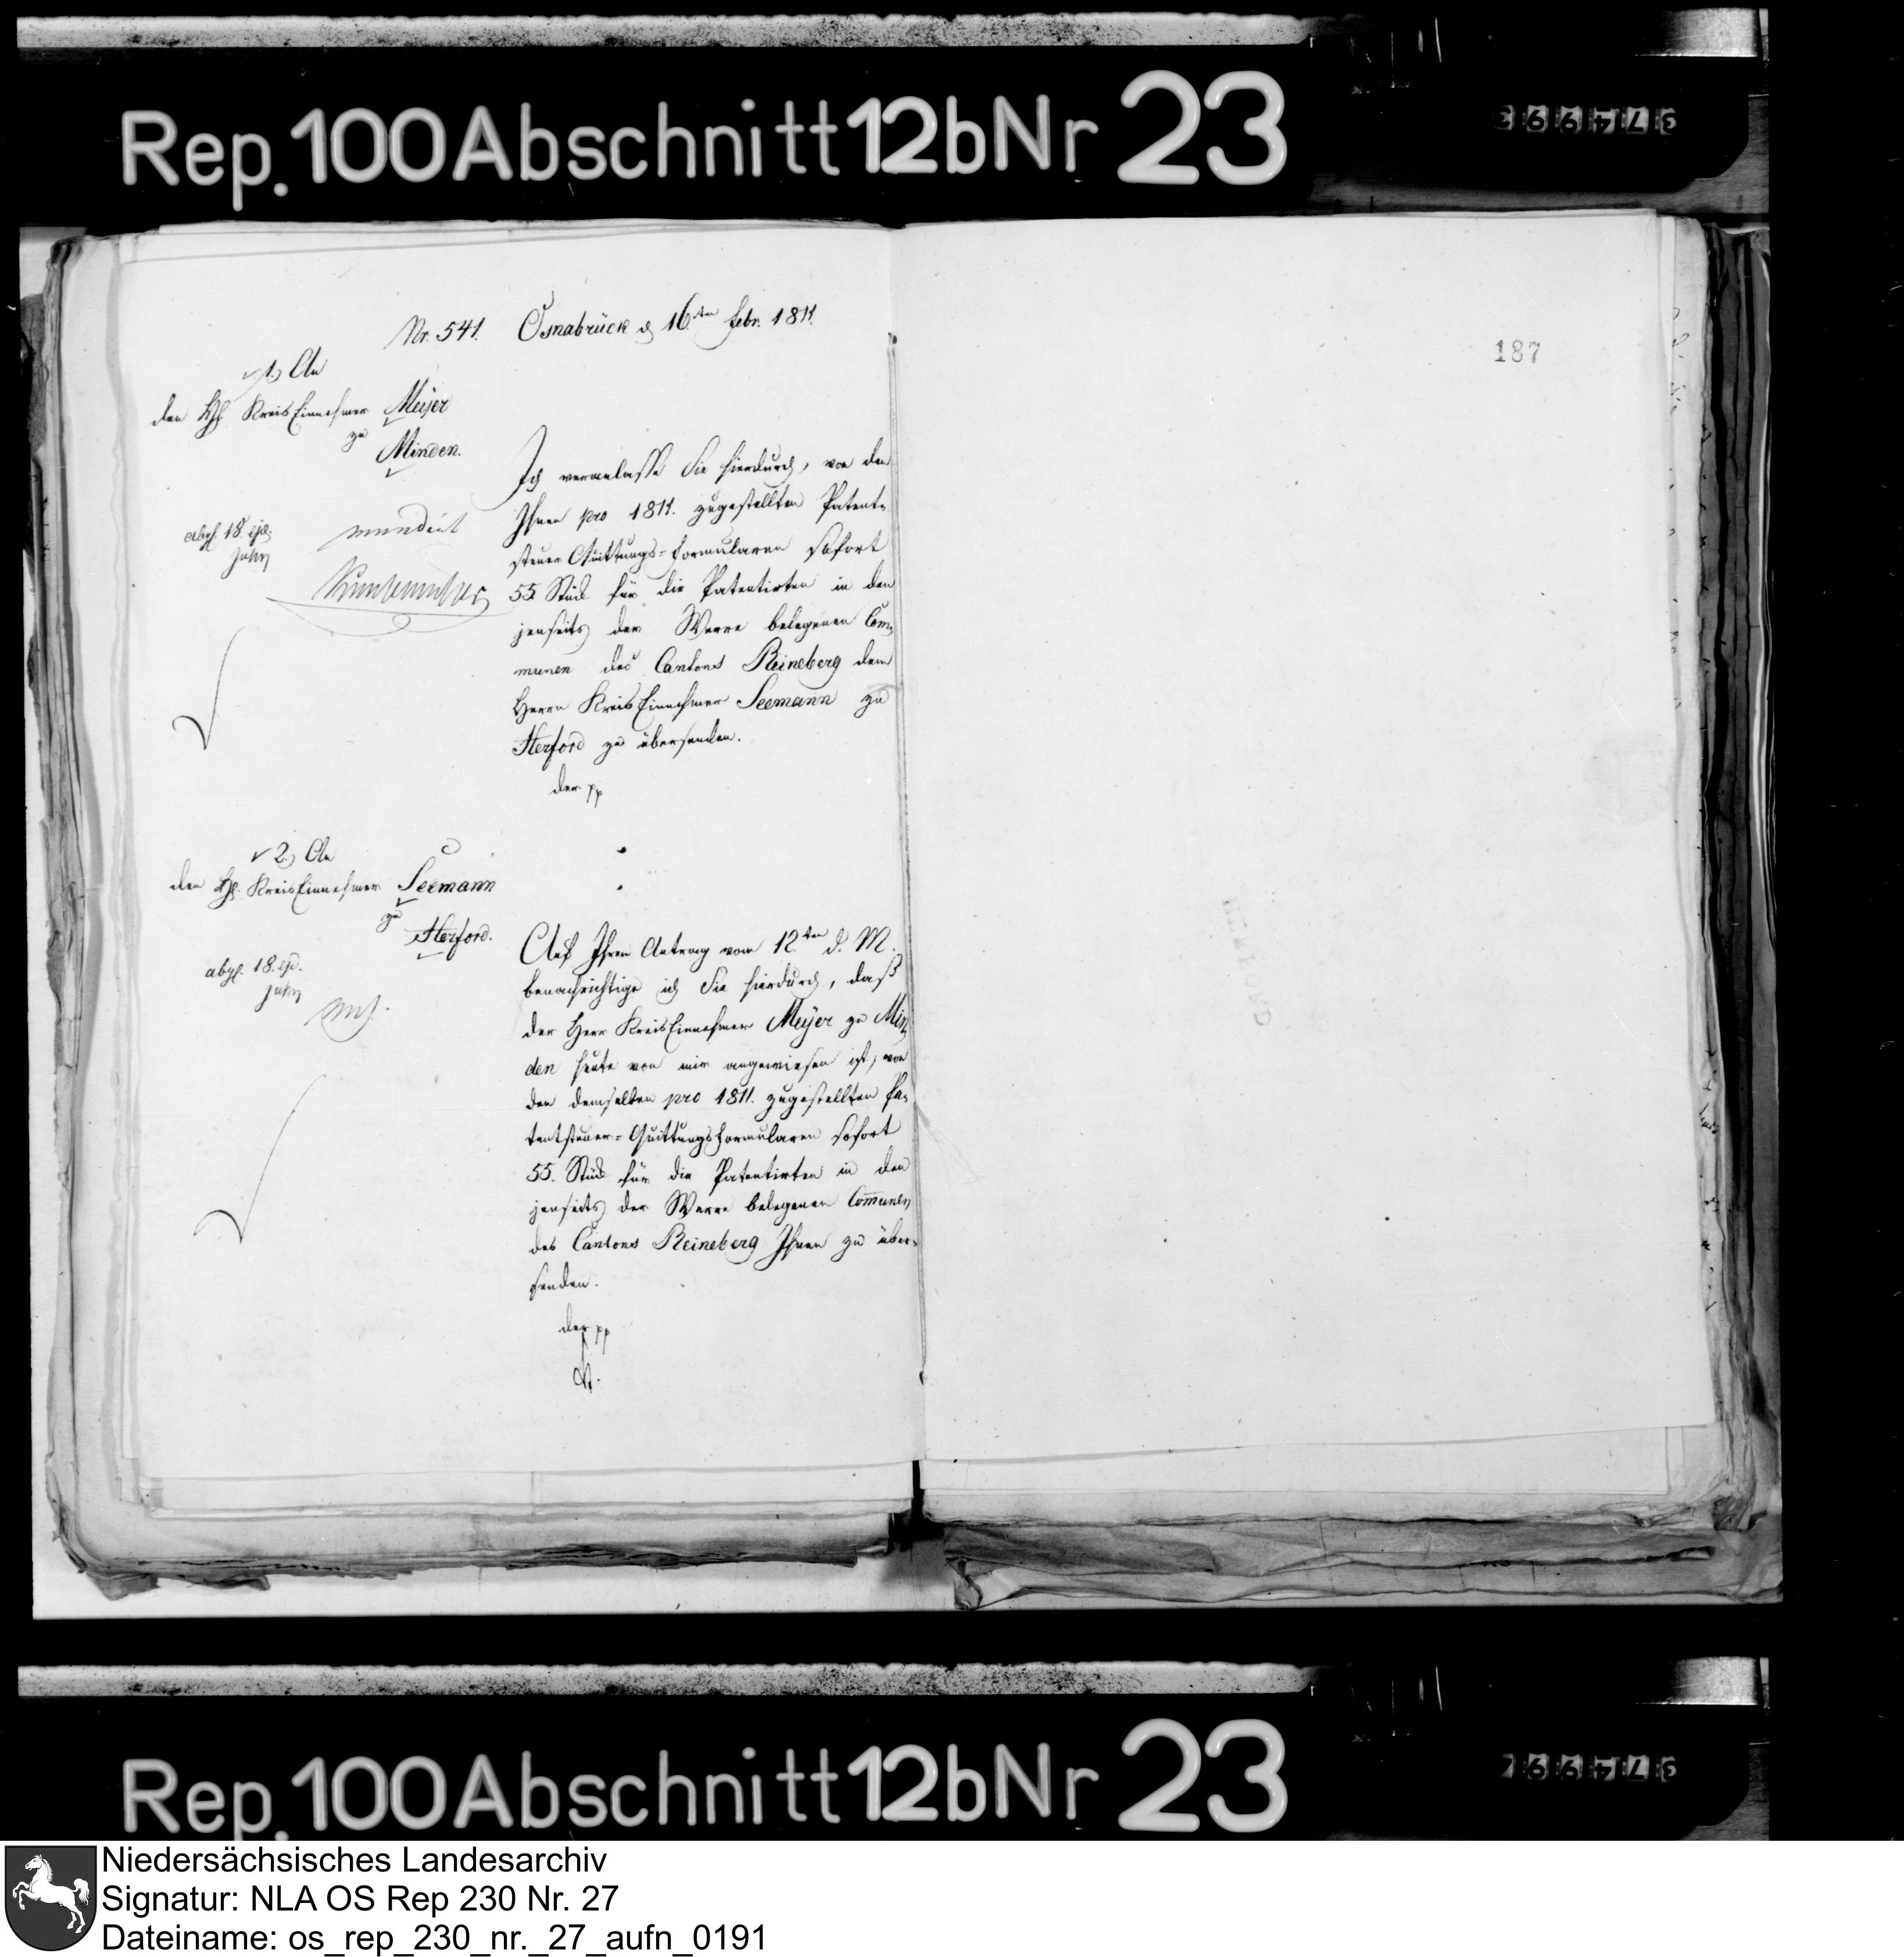 Rep. 100 Abschnitt 12b Nr 23
187
Nr. 541. Osnabrück d 16ten Febr. 1811.
1.) An
den H. KreisEinnehmer Meÿer
zu
Minden.
abges. 18. ejd.
mundirt
Ich veranlasse Sie hierdurch, von den
Ihnen pro 1811. zugestellten Patent-
steuer Quittungs-Formularen sofort
55 Stück für die Patentirten in den
jenseits der Werre belegenen Com-
munen des Cantons Reineberg dem
Herrn KreisEinnehmer Seemann zu
Herford zu übersenden.
der pp
2.) An
den H. KreisEinnehmer Seemann
zu
Herford.
abges. 18. ejd.
Auf Ihren Antrag vom 12ten d. M.
benachrichtige ich Sie hierdurch, daß
der Herr KreisEinnehmer Meÿer zu Min-
den heute von mir angewiesen ist, von
den demselben pro 1811. zugestellten Pa-
tentsteuer-Quittungsformularen sofort
55. Stück für die Patentirten in den
jenseits der Werre belegenen Com̅unen
des Cantons Reineberg Ihnen zu über-
senden.
der pp
Rep. 100 Abschnitt 12b Nr 23
Niedersächsisches Landesarchiv
Signatur: NLA OS Rep 230 Nr. 27
Dateiname: os_rep_230_nr._27_aufn_0191